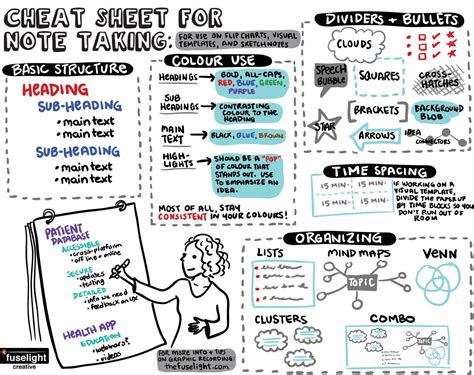 CHEAT SHEET FOR
NOTE TAKING.
FOR USE ON FLIP CHARTS, VISUAL
TEMPLATES, AND SKETCHNOTES
BASIC STRUCTURE
HEADING
SUB-HEADING
• main text
• main text
SUB-HEADING
• main text
• main text
COLOUR USE
HEADINGS
BOLD, ALL-CAPS,
RED, BLUE, GREEN,
PURPLE
SUB
HEADINGS
CONTRASTING
COLOUR TO THE
HEADING
MAIN
TEXT
BLACK, BLUE, BROWN
HIGH-
LIGHTS
SHOULD BE A "POP"
OF COLOUR THAT
STANDS OUT. USE
TO EMPHASIZE AN
IDEA.
MOST OF ALL, STAY
CONSISTENT IN YOUR COLOURS!
DIVIDERS + BULLETS
CLOUDS
SPEECH
BUBBLE
SQUARES
CROSS-
HATCHES
STAR
BRACKETS
BACKGROUND
BLOB
ARROWS
IDEA
CONNECTORS
TIME SPACING
15 MIN
15 MIN
15 MIN
15 MIN
IF WORKING ON A
VISUAL TEMPLATE,
DIVIDE THE PAPER UP
BY TIME BLOCKS SO YOU
DON'T RUN OUT OF
ROOM
ORGANIZING
LISTS
MIND MAPS
VENN
TOPIC
CLUSTERS
COMBO
TOPIC
PATIENT
DATABASE
ACCESSIBLE
• cross-platform
• off line + online
SECURE
• updates
• testing
DETAILED
• info we need
• feedback on UX
HEALTH APP
EDUCATION
• webinars?
• videos
FOR MORE INFO + TIPS
ON GRAPHIC RECORDING
thefuselight.com
fuselight
creative